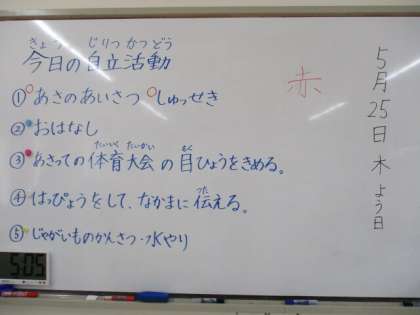 きょう じりつ かつどう
今日の自立活動
①あさのあいさつ しゅっせき
②おはなし
たいいく たいかい もく
③あさっての体育大会の目ひょうをきめる。
つた
④はっぴょうをして、なかまに伝える。
⑤じゃがいものかんさつ・水やり
赤
5月25日木よう日
5:05